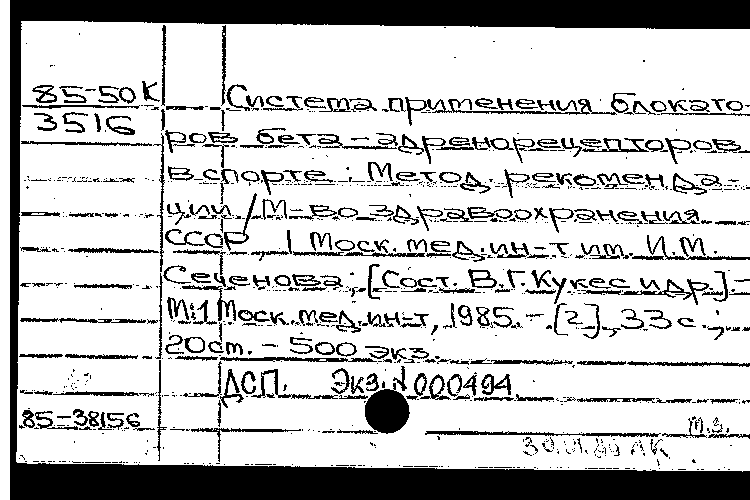 85-50К Система применения блокато-
3516 ров бета-адренорецепторов
в спорте : Метод. рекоменда-
ции / М-во здравоохранения
СССР, 1 Моск. мед. ин-т им. И.М.
Сеченова; [Сост. В.Г. Кукес и др.] -
М.: 1 Моск. мед. ин-т, 1985. - [2], 33 с.;
20 см. - 500 экз.
ДСП. Экз. N 000494
85-38156 М.З.